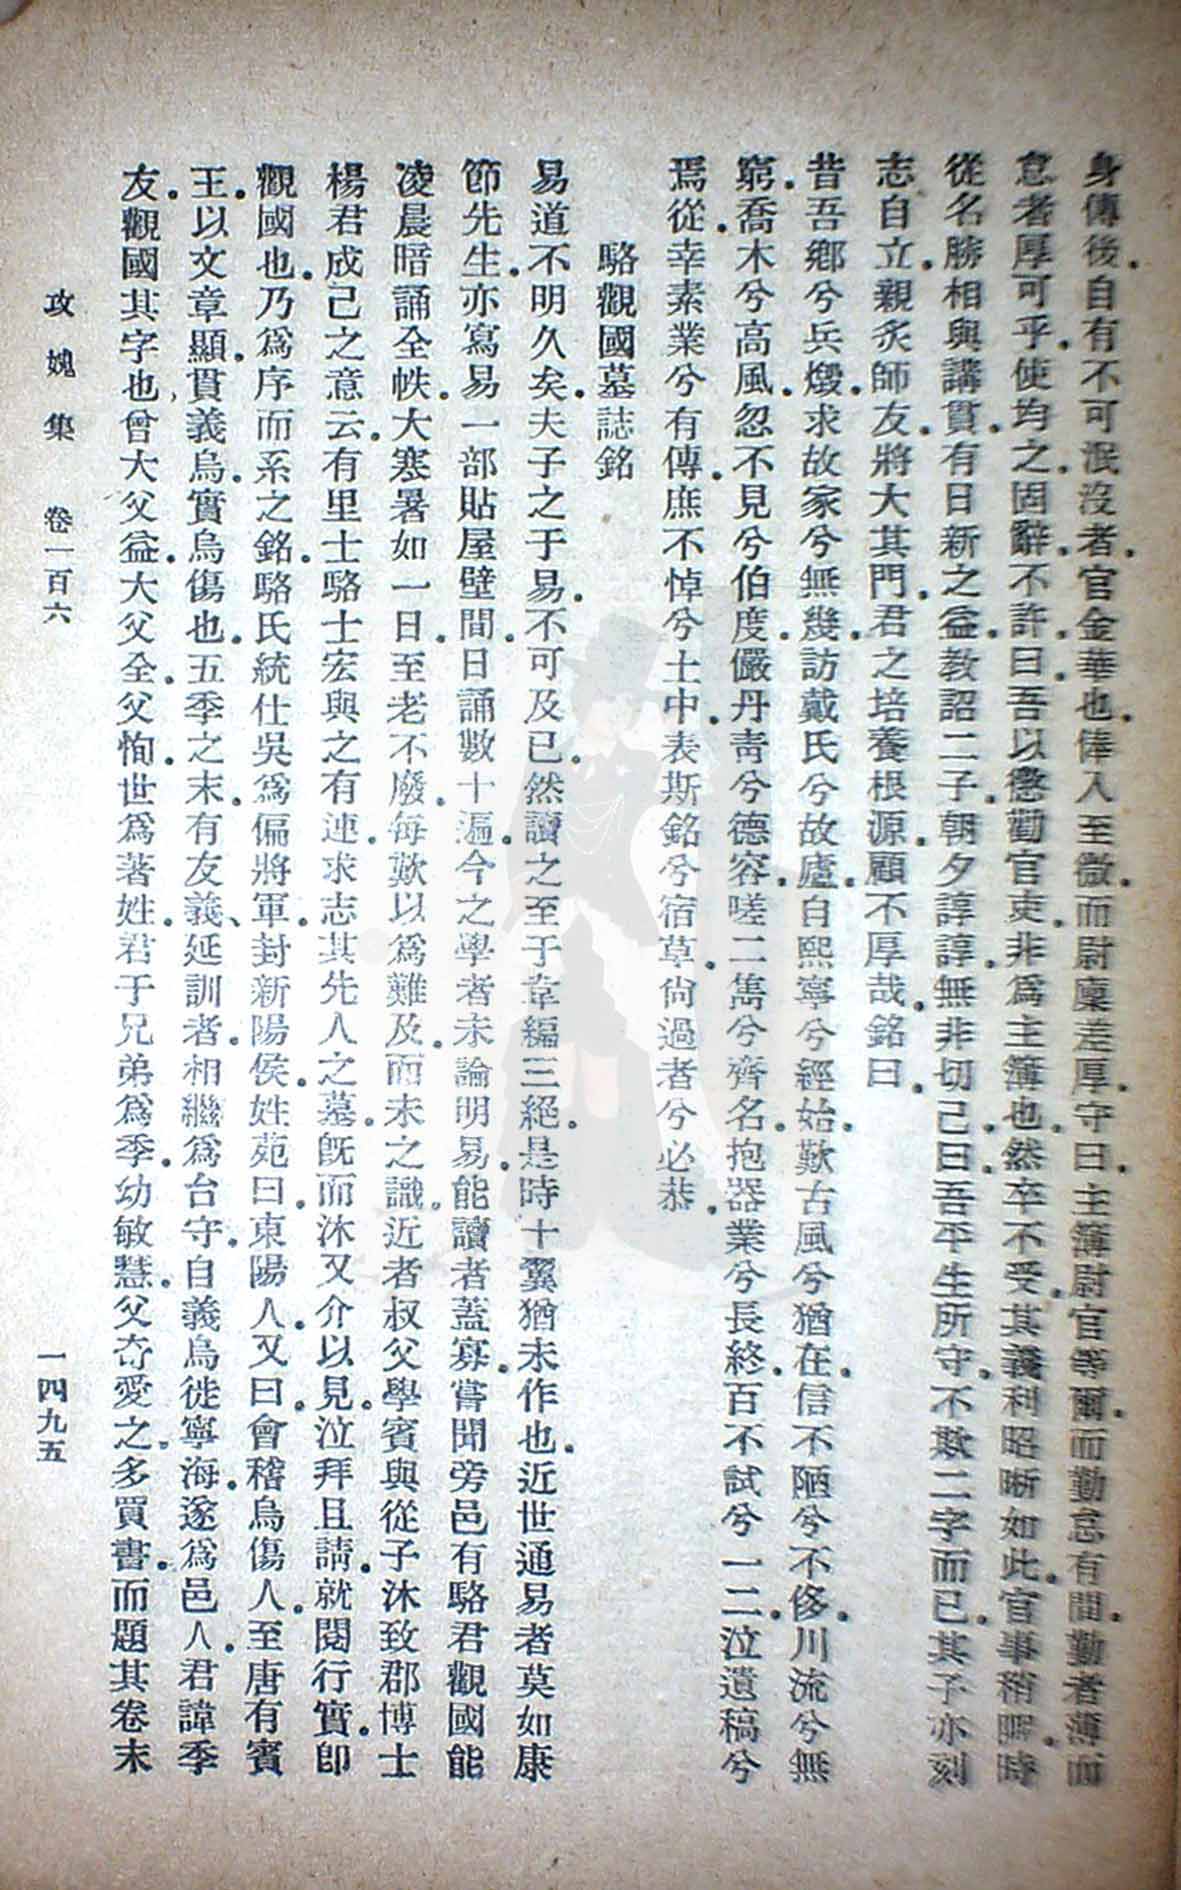 身傳後。自有不可泯沒者。官金華也。俸入至微。而尉廩差厚。守曰。主簿尉官等爾。而勤怠有間。勤者薄而
怠者厚可乎。使均之。固辭。不許。曰。吾以懲勸官吏。非爲主簿也。然卒不受。其義利昭晰如此。官事稍暇。時
從名勝。相與講貫。有日新之益。教詔二子。朝夕諄諄。無非切己。曰。吾平生所守。不欺二字而已。其子亦刻
志自立。親炙師友。將大其門。君之培養根源。顧不厚哉。銘曰。
昔吾鄉兮兵燬。求故家兮無幾。訪戴氏兮故廬。自熙寧兮經始。歎古風兮猶在。信不陋兮不侈。川流兮無
窮。喬木兮高風。忽不見兮伯度。儼丹青兮德容。嗟二雋兮齊名。抱器業兮長終。百不試兮一二。泣遺稿兮
焉從。幸素業兮有傳。庶不悼兮土中。表斯銘兮宿草。尙過者兮必恭。
駱觀國墓誌銘
易道不明久矣。夫子之于易。不可及已。然讀之至于韋編三絕。是時十翼猶未作也。近世通易者莫如康
節先生。亦寫易一部貼屋壁間。日誦數十遍。今之學者未論明易。能讀者蓋寡。嘗聞旁邑有駱君觀國能
凌晨暗誦全帙。大寒暑如一日。至老不廢。每歎以爲難及。而未之識。近者叔父學賓與從子沐致郡博士
楊君成己之意云。有里士駱士宏與之有連。求志其先人之墓。旣而沐又介以見。泣拜且請。就閱行實。卽
觀國也。乃爲序而系之銘。駱氏統仕吳爲偏將軍。封新陽侯。姓苑曰。東陽人。又曰。會稽烏傷人。至唐有賓
王。以文章顯。貫義烏。實烏傷也。五季之末。有友義、延訓者。相繼爲台守。自義烏徙寧海。遂爲邑人。君諱季
友。觀國其字也。曾大父益。大父全。父恂。世爲著姓。君于兄弟爲季。幼敏慧。父奇愛之。多買書。而題其卷末
攻媿集 卷一百六 一四九五